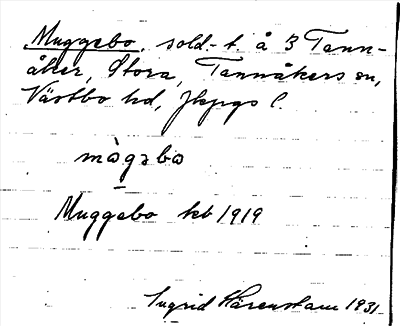 Muggebo, sold.-t. å 3 Tann-
åker, Stora, Tannåkers sn,
Västbo hd, Jkpgs l.
mògəbo
Muggebo kb 1919
Ingrid Härenstam 1931